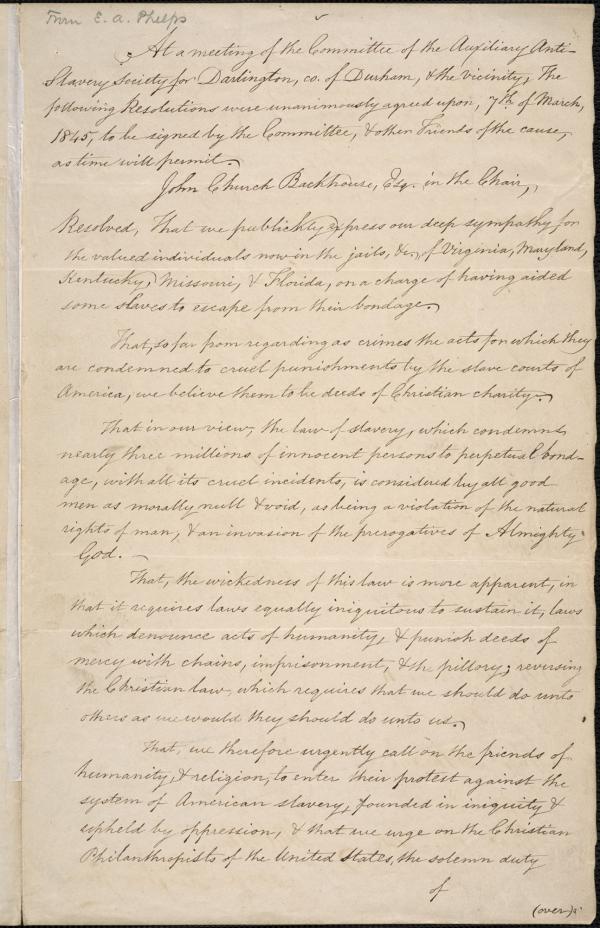 From E. A. Phelps
At a meeting of the Committee of the Auxiliary Anti-
Slavery Society for Darlington, co. of Durham, & the vicinity, The
following Resolutions were unanimously agreed upon, 7th of March,
1845, to be signed by the Committee, & other Friends of the cause,
as time will permit.
John Church Backhouse, Esq. in the Chair,
Resolved, That we publickly express our deep sympathy for
the valued individuals now in the jails, &c, of Virginia, Maryland,
Kentucky, Missouri, & Florida, on a charge of having aided
some slaves to escape from their bondage.
That, so far from regarding as crimes the acts for which they
are condemned to cruel punishments by the slave courts of
America, we believe them to be deeds of Christian charity.
That in our view, the law of slavery, which condemns
nearly three millions of innocent persons to perpetual bond-
age, with all its cruel incidents, is considered by all good
men as morally null & void, as being a violation of the natural
rights of man, & an invasion of the prerogatives of Almighty
God.
That, the wickedness of this law is more apparent, in
that it requires laws equally iniquitous to sustain it, laws
which denounce acts of humanity, & punish deeds of
mercy with chains, imprisonment, & the pillory; reversing
the Christian law, which requires that we should do unto
others as we would they should do unto us.
That, we therefore urgently call on the friends of
humanity & religion, to enter their protest against the
system of American slavery, founded in iniquity &
upheld by oppression, & that we urge on the Christian
Philanthropists of the United States, the solemn duty
of
(over)